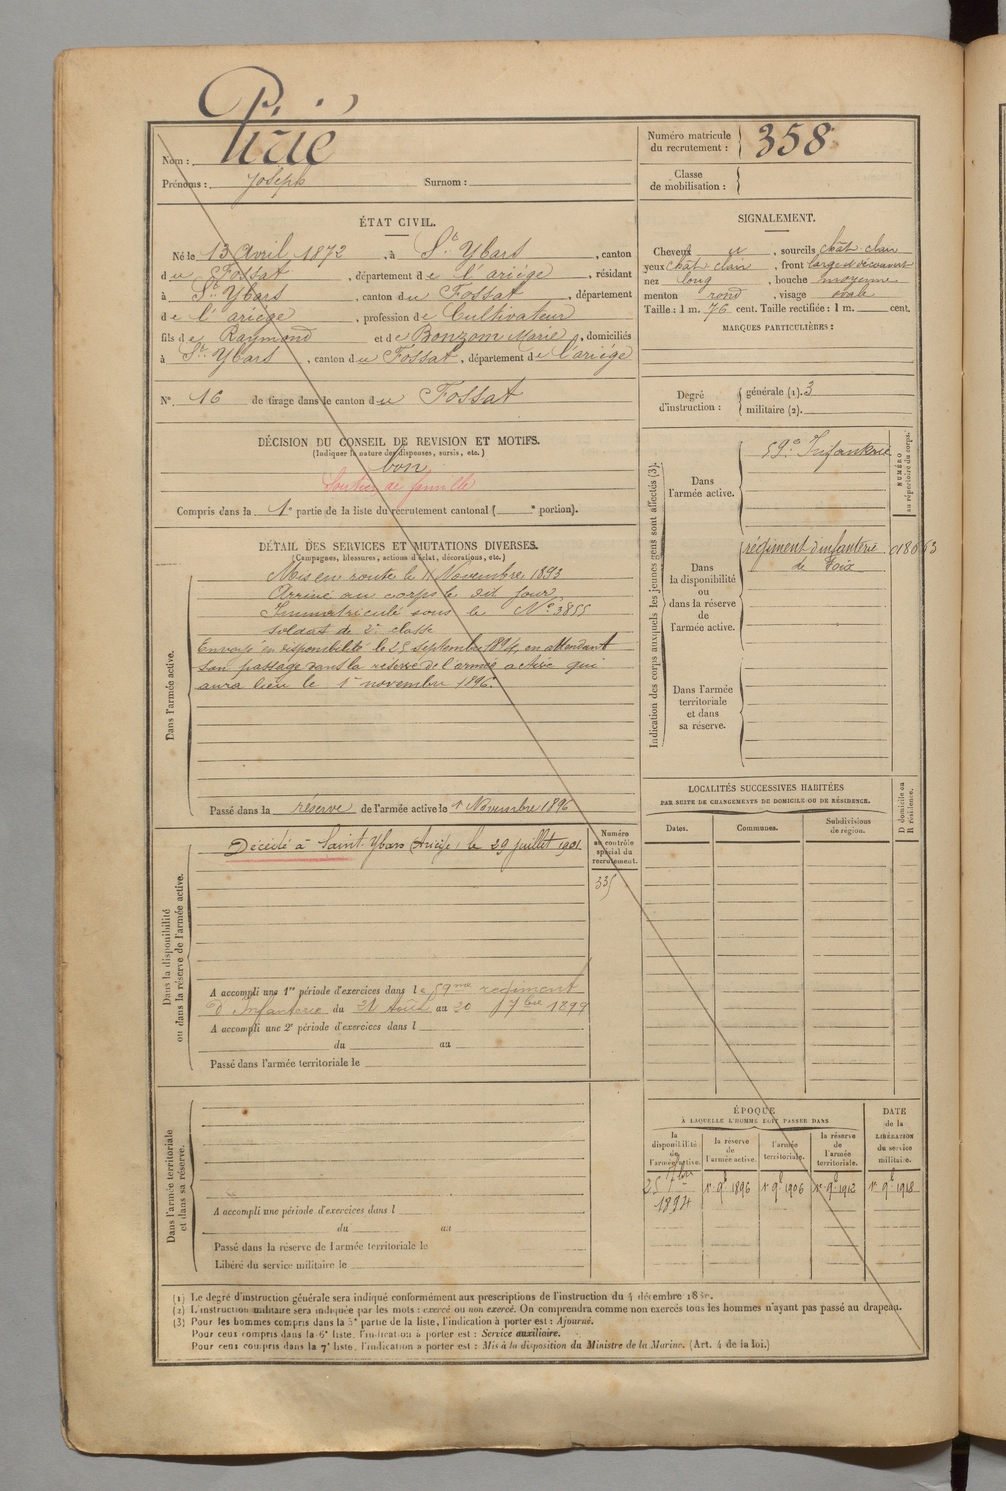 Nom : Pirié
Prénoms : Joseph Surnom :
Numéro matricule du recrutement : 358
Classe de mobilisation :
ÉTAT CIVIL.
Né le 13 Avril 1872, à St Ybars, canton
du Fossat, département de l'ariège, résidant
à St Ybars, canton du Fossat, département
de l'ariège, profession de Cultivateur
fils de Raymond et de Bonzom Marie, domiciliés
à St Ybars, canton du Fossat, département de l'ariége
N° 16 de tirage dans le canton du Fossat
SIGNALEMENT.
Cheveux et, sourcils chât. clair
yeux chât clair, front large découvert
nez long, bouche moyenne
menton rond, visage ovale
Taille : 1 m. 76 cent. Taille rectifiée : 1 m. cent.
MARQUES PARTICULIÈRES :
Degré d'instruction : générale (1). 3
militaire (2).
DÉCISION DU CONSEIL DE REVISION ET MOTIFS.
(Indiquer la nature des dispenses, sursis, etc.)
bon
Soutien de famille
Compris dans la 1e partie de la liste du recrutement cantonal ( e portion).
DÉTAIL DES SERVICES ET MUTATIONS DIVERSES.
(Campagnes, blessures, actions d'éclat, décorations, etc.)
Dans l'armée active.
Mis en route le 11 Novembre 1893
Arrivé au corps le dit jour
Immatriculé sous le N° 3855
soldat de 2e classe
Envoyé en disponibilité le 25 septembre 1894, en attendant
son passage dans la réserve de l'armée active qui
aura lieu le 1er novembre 1896.
Passé dans la réserve de l'armée active le 1er Novembre 1896
Indication des corps auxquels les jeunes gens sont affectés (3).
NUMÉRO au répertoire du corps.
Dans l'armée active.
59e Infanterie
Dans la disponibilité ou dans la réserve de l'armée active.
régiment d'infanterie
de Foix
Dans l'armée territoriale et dans sa réserve.
LOCALITÉS SUCCESSIVES HABITÉES
PAR SUITE DE CHANGEMENTS DE DOMICILE OU DE RÉSIDENCE.
D domicile ou R résidence.
Dates. Communes. Subdivisions de région.
Dans la disponibilité ou dans la réserve de l'armée active.
Numéro au contrôle spécial du recrutement.
335
Décédé à Saint-Ybars (Ariège) le 29 juillet 1901.
A accompli une 1re période d'exercices dans le 59me régiment
d'Infanterie du 21 Août au 20 7bre 1899
A accompli une 2e période d'exercices dans l
du au
Passé dans l'armée territoriale le
Dans l'armée territoriale et dans sa réserve.
A accompli une période d'exercices dans l
du au
Passé dans la réserve de l'armée territoriale le
Libéré du service militaire le
ÉPOQUE
À LAQUELLE L'HOMME DOIT PASSER DANS
DATE de la LIBÉRATION du service militaire.
la disponibilité de l'armée active. la réserve de l'armée active. l'armée territoriale. la réserve de l'armée territoriale.
25 7bre 1894 1er 9b 1896 1er 9b 1906 1er 9b 1912 1er 9b 1918
(1) Le degré d'instruction générale sera indiqué conformément aux prescriptions de l'instruction du 4 décembre
(2) L'instruction militaire sera indiquée par les mots : exercé ou non exercé. On comprendra comme non exercés tous les hommes n'ayant pas passé au drapeau.
(3) Pour les hommes compris dans la 5e partie de la liste, l'indication à porter est : Ajourné.
Pour ceux compris dans la 6e liste, l'indication à porter est : Service auxiliaire.
Pour ceux compris dans la 7e liste, l'indication à porter est : Mis à la disposition du Ministre de la Marine. (Art. 4 de la loi.)